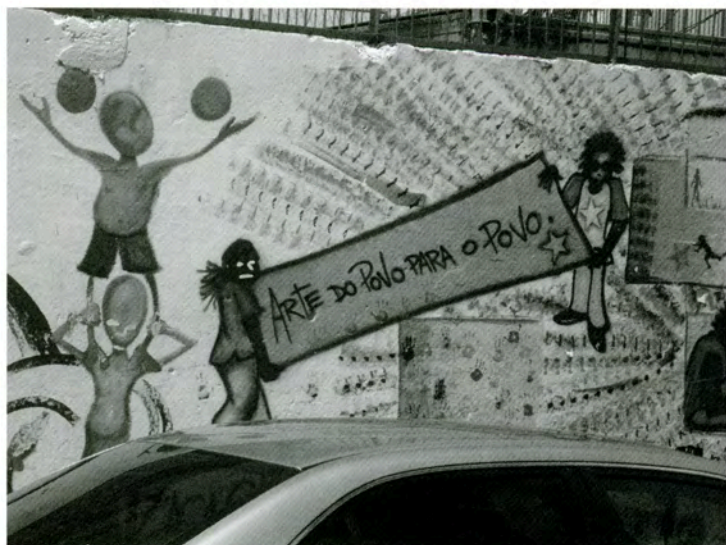 ARTE DO POVO PARA O POVO.